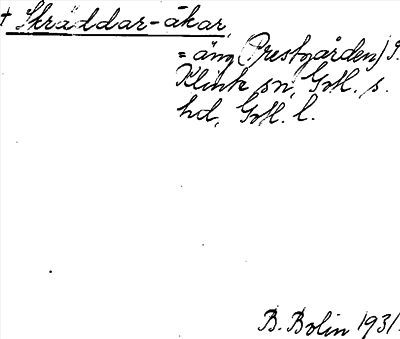 + Skräddar-åkar,
= äng (Prestgården) i
Klinte sn, Gotl. s.
hd, Gotl. l.
B. Bolin 1931.